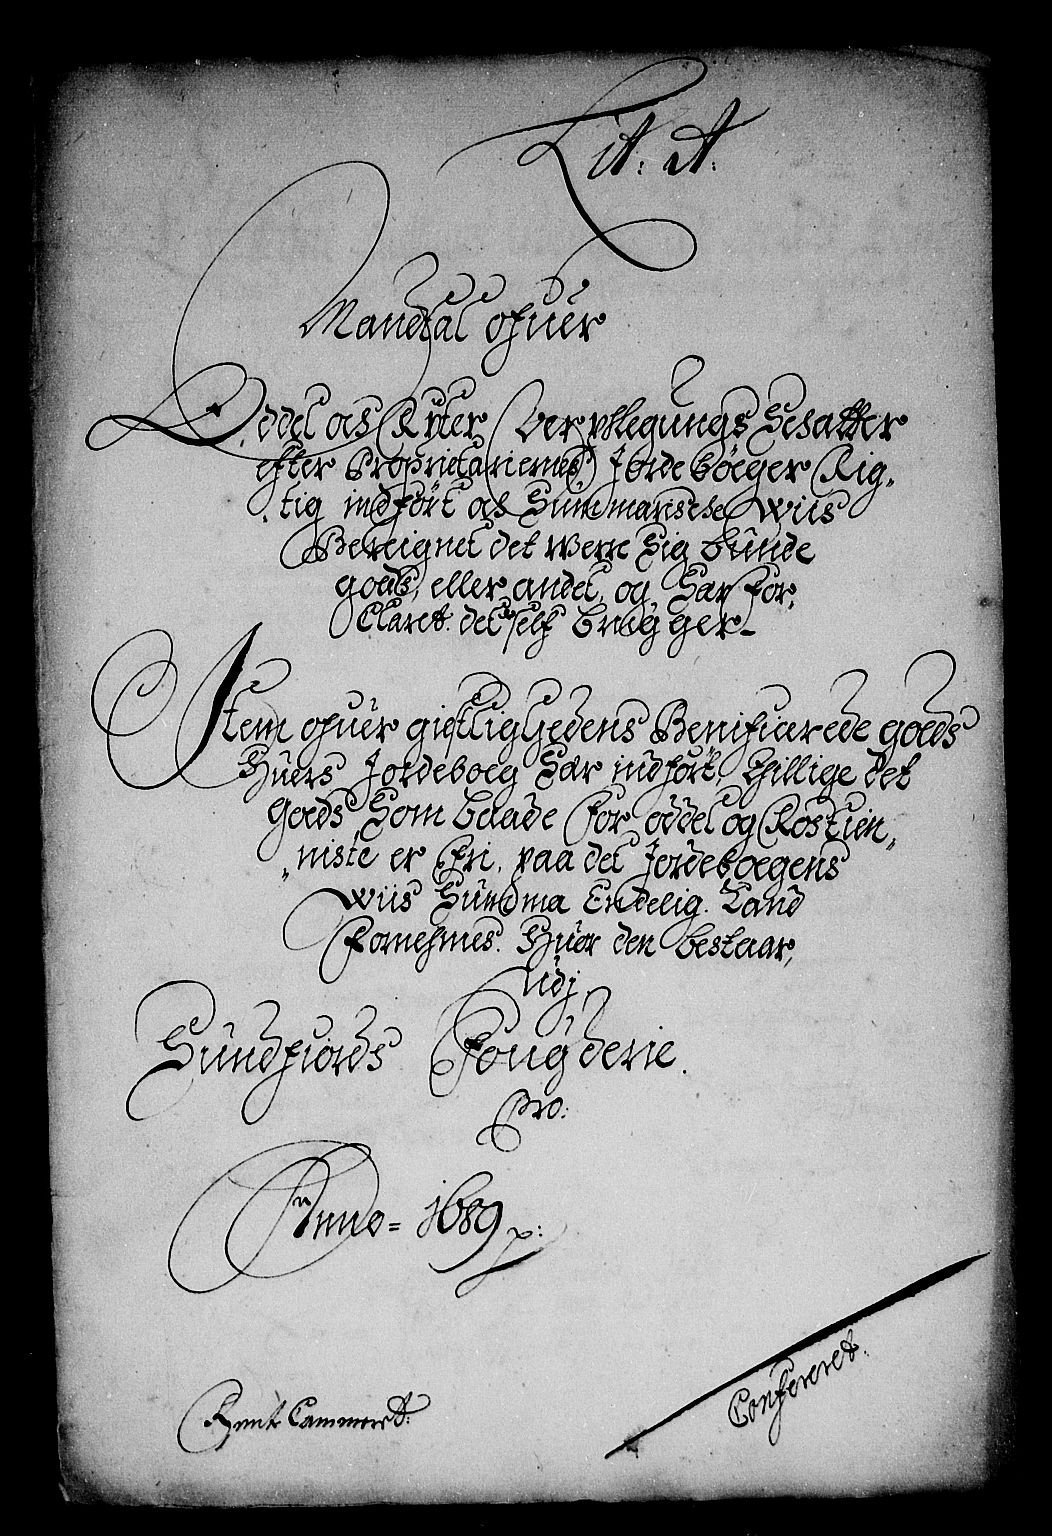 Lit: A:
Mandtal ofuer
Oddel og Rÿter Verpflegungs Schatter
efter Proprietariernes Jordebøeger Rig,
tig indført och Summarische Wiis
Bereignet det Were Sig bunde
gods, eller andet, og Sær for,
Claret. det self bruger
Item ofuer gieftlighedens Benificerede goeds
Huers Jordeboeg Sær indført, Thillige det
Goeds Som baade for oddel og Rostien,
niste er Fri, paa det Jordeboegens
Wiis Summa Endelig. Kand
Fornehmes. Huor den bestaar,
Udj
Sundfiords Fougderie.
Pro:
Anno = 1689 p:
Rente Cammeret:
Confereret.